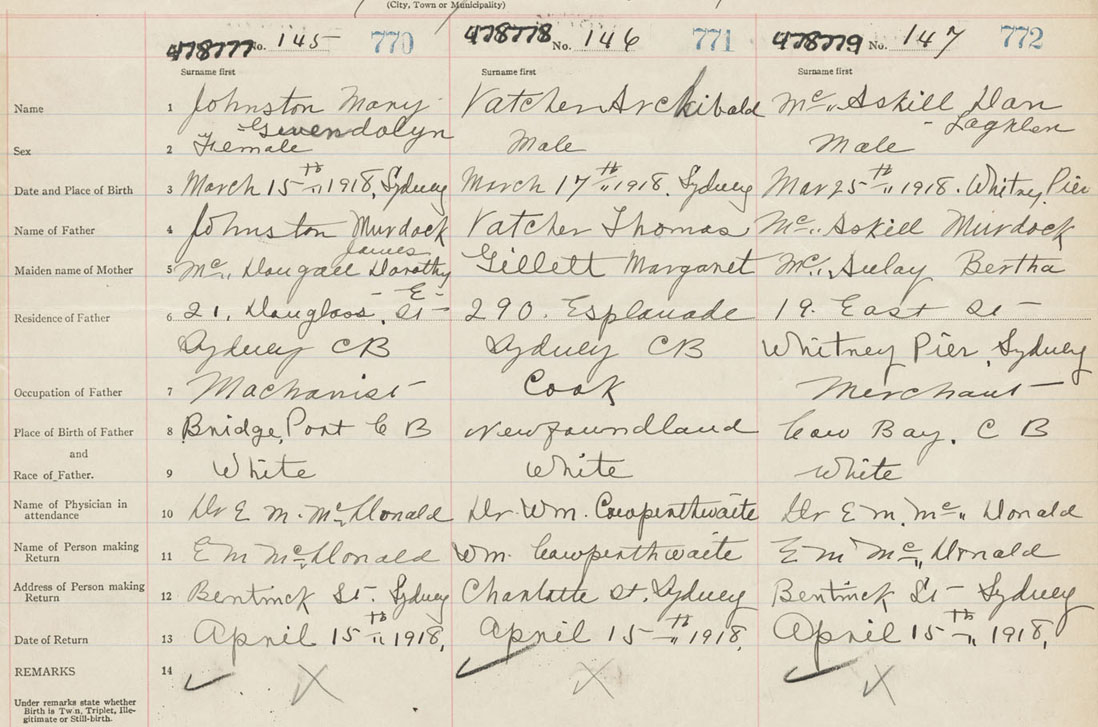 (City, Town or Municipality)
478777 No. 145 770 478778 No. 146 771 478779 No. 147 772
Surname first Surname first Surname first
Name 1 Johnston Mary Vatcher Archibald Mc Askill Dan
Gwendolyn - Laghlen
Sex 2 Female Male Male
Date and Place of Birth 3 March 15th 1918, Sydney March 17th 1918. Sydney Mar 25th 1918. Whitney Pier
Name of Father 4 Johnston Murdock Vatcher Thomas Mc Askill Murdock
James
Maiden name of Mother 5 Mc Dougall Dorothy Gillett Margaret Mc Aulay Bertha
- E -
Residence of Father 6 21, Douglass, St - 290. Esplanade 19. East St -
Sydney CB Sydney CB Whitney Pier, Sydney
Occupation of Father 7 Machanist Cook Merchant
Place of Birth of Father 8 Bridge, Port C B Newfoundland Cow Bay, C B
and
Race of Father. 9 White White White
Name of Physician in attendance 10 Dr E M. Mc Donald Dr Wm. Cowperthwaite Dr E M. Mc Donald
Name of Person making Return 11 E M Mc Donald Wm. Cowperthwaite E M Mc Donald
Address of Person making Return 12 Bentinck St - Sydney Charlotte St. Sydney Bentinck St - Sydney
Date of Return 13 April 15th 1918, April 15th 1918, April 15th 1918,
REMARKS 14 ✓ X ✓ X ✓ X
Under remarks state whether
Birth is Twin, Triplet, Ille-
gitimate or Still-birth.